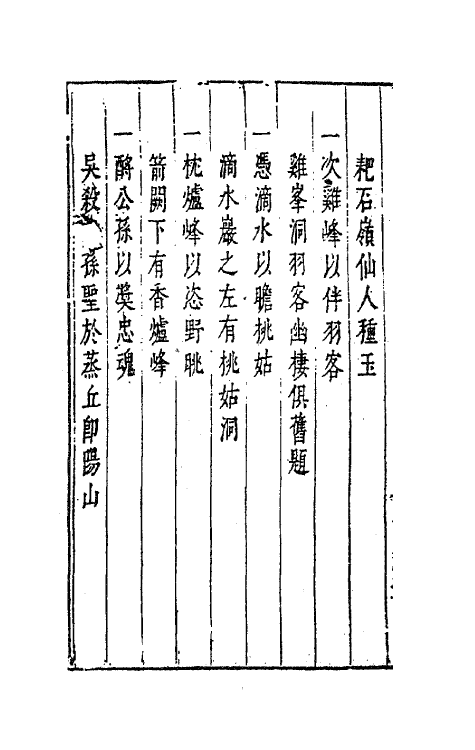 耙石嶺仙人種玉
一次雞峰以伴羽客
雞峯洞羽客幽棲俱舊題
一憑滴水以瞻桃姑
滴水巖之左有桃姑洞
一枕爐峰以恣野眺
箭闕下有香爐峰
一酹公孫以奠忠魂
吳殺孫聖於蒸丘卽陽山